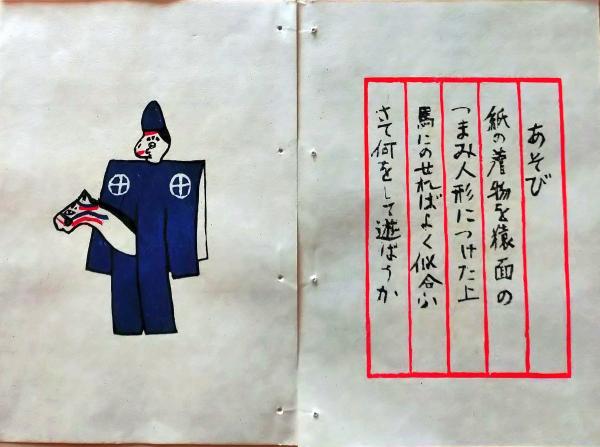 あそび
紙の着物を猿面の
つまみ人形につけた上
馬にのせればよく似合ふ
さて何をして遊ばうか